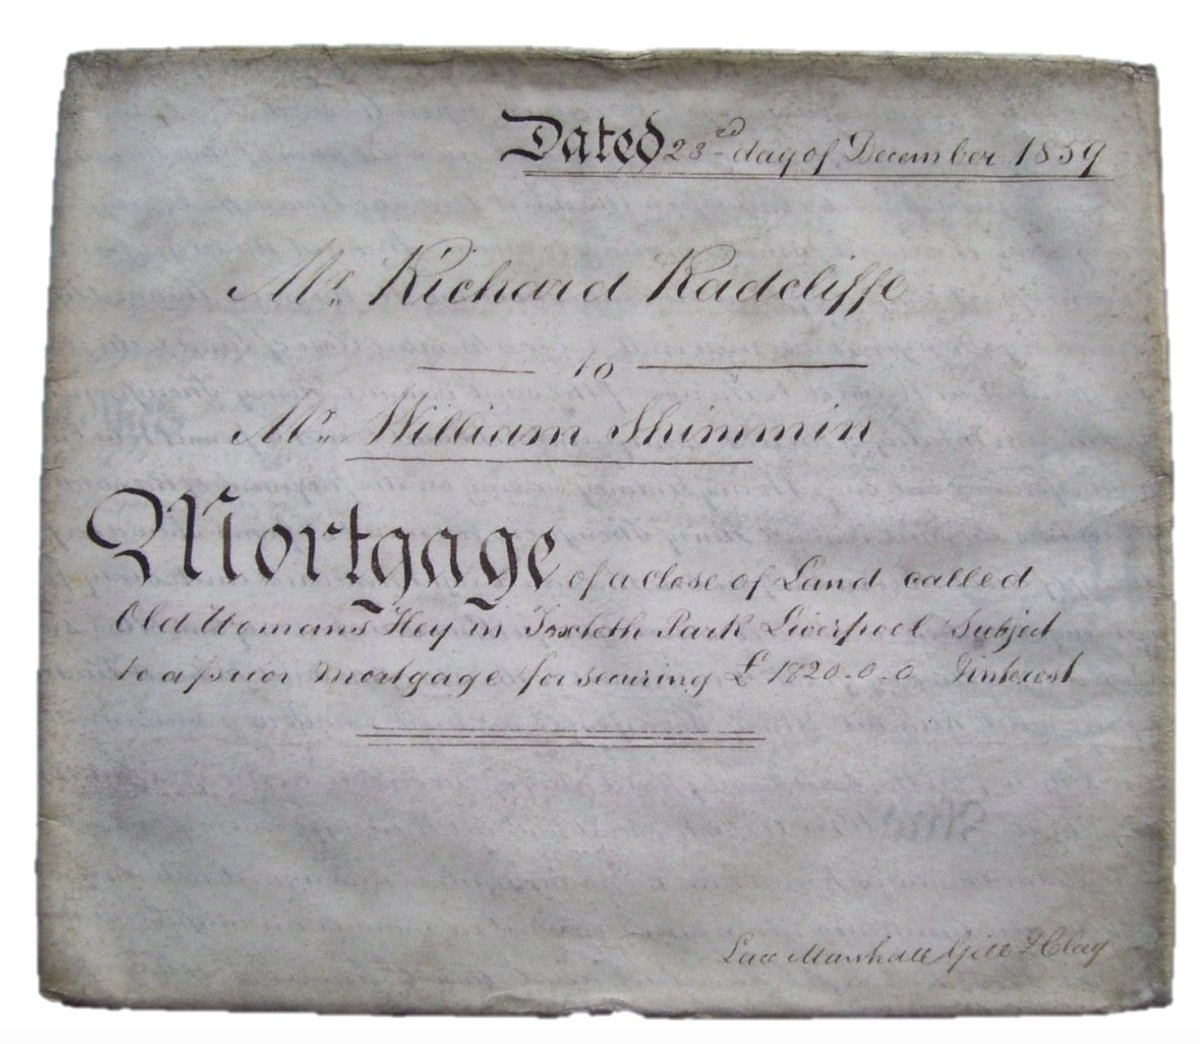 Dated 23rd day of December 1859
Mr. Richard Radcliffe
to
Mr. William Shimmin
Mortgage of a close of Land called
Old Womans Hey in Toxteth Park Liverpool Subject
to a prior mortgage for securing £1820-0-0 & interest
Marshall Gill & Clay